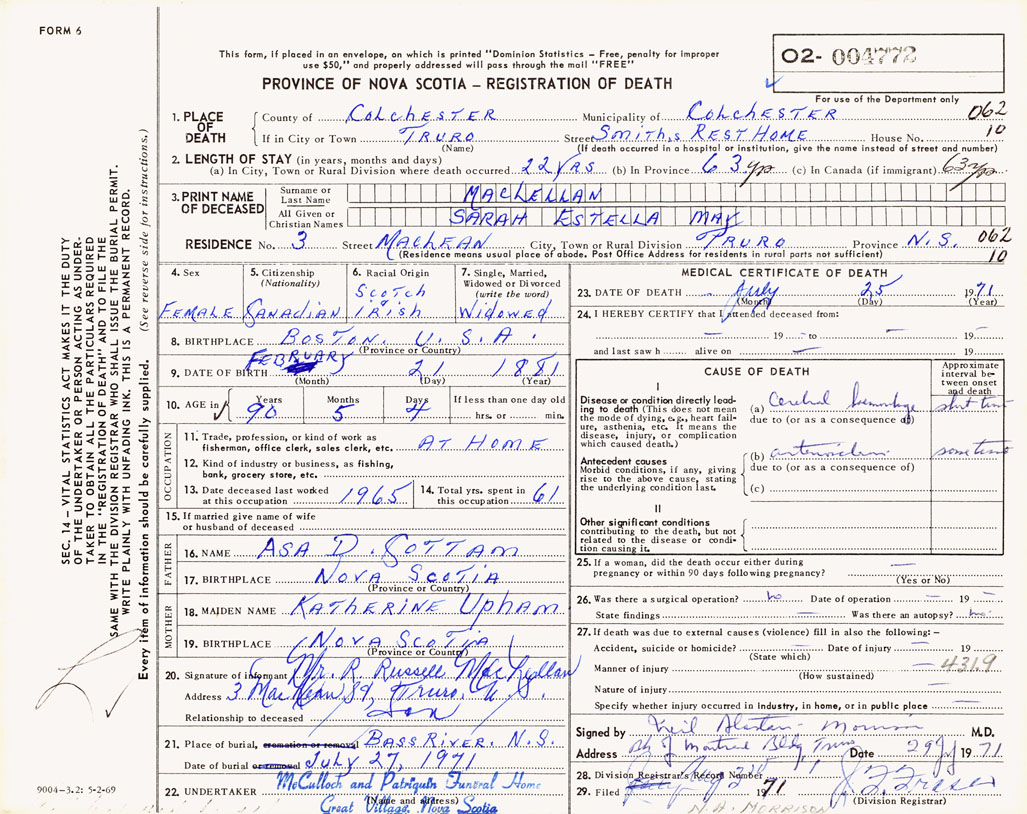 FORM 6
This form, if placed in an envelope, on which is printed "Dominion Statistics – Free, penalty for improper
use $50," and properly addressed will pass through the mail "FREE"
O2- 004772
PROVINCE OF NOVA SCOTIA – REGISTRATION OF DEATH
For use of the Department only
1. PLACE OF DEATH County of COLCHESTER Municipality of COLCHESTER 062
If in City or Town TRURO Street Smith,s REST HOME House No. 10
(Name) (If death occurred in a hospital or institution, give the name instead of street and number)
2. LENGTH OF STAY (in years, months and days)
(a) In City, Town or Rural Division where death occurred 22 yrs (b) In Province 63 yrs (c) In Canada (if immigrant) 63 yrs
3. PRINT NAME OF DECEASED Surname or Last Name MACLELLAN
All Given or Christian Names SARAH ESTELLA MAY
RESIDENCE No. 3 Street MACLEAN City, Town or Rural Division TRURO Province N.S. 062
(Residence means usual place of abode. Post Office Address for residents in rural parts not sufficient) 10
4. Sex FEMALE
5. Citizenship (Nationality) CANADIAN
6. Racial Origin Scotch IRISH
7. Single, Married, Widowed or Divorced (write the word) WIDOWED
8. BIRTHPLACE BOSTON. U.S.A.
(Province or Country)
9. DATE OF BIRTH FEBRUARY 21 1881
(Month) (Day) (Year)
10. AGE in Years 90 Months 5 Days 4 If less than one day old hrs. or min.
OCCUPATION
11. Trade, profession, or kind of work as fisherman, office clerk, sales clerk, etc. AT HOME
12. Kind of industry or business, as fishing, bank, grocery store, etc.
13. Date deceased last worked at this occupation 1965
14. Total yrs. spent in this occupation 61
15. If married give name of wife or husband of deceased
FATHER
16. NAME ASA D. COTTAM
17. BIRTHPLACE NOVA SCOTIA
(Province or Country)
MOTHER
18. MAIDEN NAME KATHERINE UPHAM
19. BIRTHPLACE NOVA SCOTIA
(Province or Country)
20. Signature of informant Mr. R. Russell MacLellan
Address 3 MacLean St, Truro, N.S.
Relationship to deceased Son
21. Place of burial, cremation or removal BASS RIVER, N.S.
Date of burial or removal JULY 27, 1971
22. UNDERTAKER McCulloch and Patriquin Funeral Home
(Name and address)
Great Village, Nova Scotia
MEDICAL CERTIFICATE OF DEATH
23. DATE OF DEATH July 25 1971
(Month) (Day) (Year)
24. I HEREBY CERTIFY that I attended deceased from:
— 19 — to — 195
and last saw h alive on — 19
CAUSE OF DEATH
Approximate interval between onset and death
I
Disease or condition directly leading to death (This does not mean the mode of dying, e.g., heart failure, asthenia, etc. It means the disease, injury, or complication which caused death.)
(a) Cerebral hemorrhage short time
due to (or as a consequence of)
Antecedent causes
Morbid conditions, if any, giving rise to the above cause, stating the underlying condition last.
(b) some time
due to (or as a consequence of)
(c)
II
Other significant conditions contributing to the death, but not related to the disease or condition causing it.
25. If a woman, did the death occur either during pregnancy or within 90 days following pregnancy? —
(Yes or No)
26. Was there a surgical operation? no Date of operation — 19 —
State findings — Was there an autopsy? no
27. If death was due to external causes (violence) fill in also the following: –
Accident, suicide or homicide? — Date of injury — 19
(State which)
Manner of injury — 431.9
(How sustained)
Nature of injury
Specify whether injury occurred in industry, in home, or in public place —
Signed by Neil Alastair Morrison M.D.
Address Bk of Montreal Bldg Truro Date 29 1971
28. Division Registrar's Record Number
29. Filed Aug 2 1971
(Division Registrar)
N.A. MORRISON
SEC. 14 – VITAL STATISTICS ACT MAKES IT THE DUTY
OF THE UNDERTAKER OR PERSON ACTING AS UNDER-
TAKER TO OBTAIN ALL THE PARTICULARS REQUIRED
IN THE "REGISTRATION OF DEATH" AND TO FILE THE
SAME WITH THE DIVISION REGISTRAR WHO SHALL ISSUE THE BURIAL PERMIT.
WRITE PLAINLY WITH UNFADING INK. THIS IS A PERMANENT RECORD.
Every item of information should be carefully supplied. (See reverse side for instructions.)
9004–3.2: 5-2-69